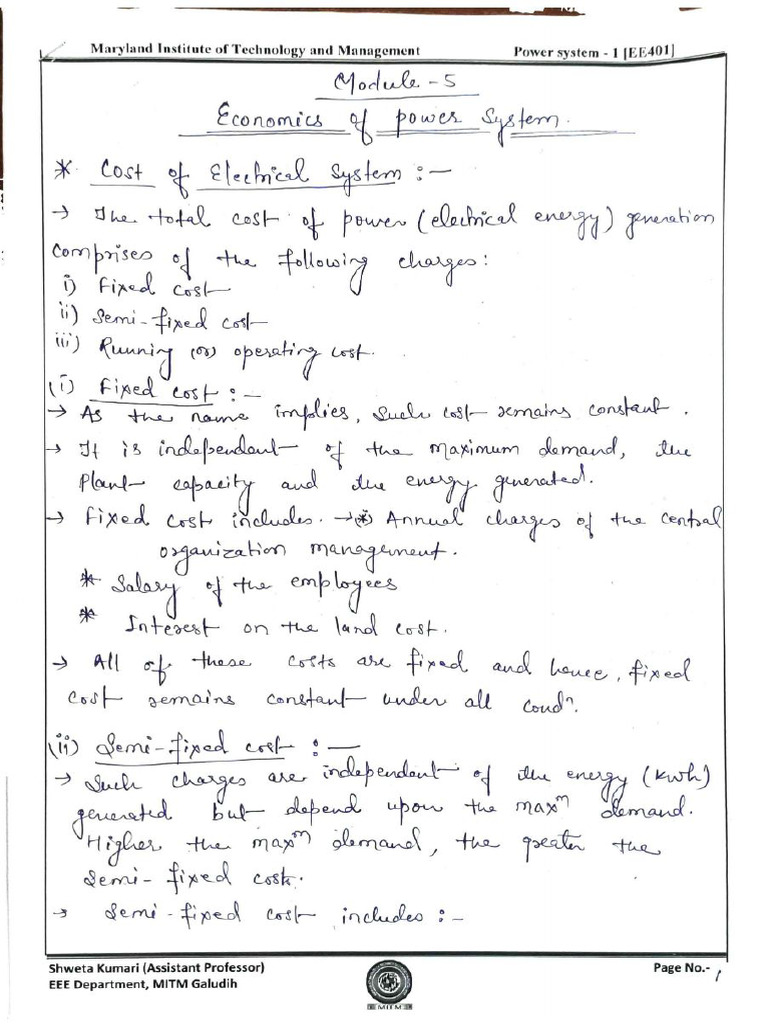 Maryland Institute of Technology and Management Power system - 1 [EE401]
Module - 5
Economics of power System.
* Cost of Electrical System :-
→ The total cost of power (electrical energy) generation
comprises of the following charges:
i) Fixed cost
ii) Semi-fixed cost
iii) Running (or) operating cost.
(i) Fixed cost :-
→ As the name implies, such cost remains constant.
→ It is independant of the maximum demand, the
plant capacity and the energy generated.
→ Fixed cost includes. → (*) Annual charges of the central
organization management.
* Salary of the employees
* Interest on the land cost.
→ All of these costs are fixed and hence, fixed
cost remains constant under all condn.
(ii) Semi-fixed cost :-
→ Such charges are independant of the energy (kwh)
generated but depend upon the maxm demand.
Higher the maxm demand, the greater the
semi-fixed cost.
→ Semi-fixed cost includes :-
Shweta Kumari (Assistant Professor) Page No.- 1
EEE Department, MITM Galudih
MITM